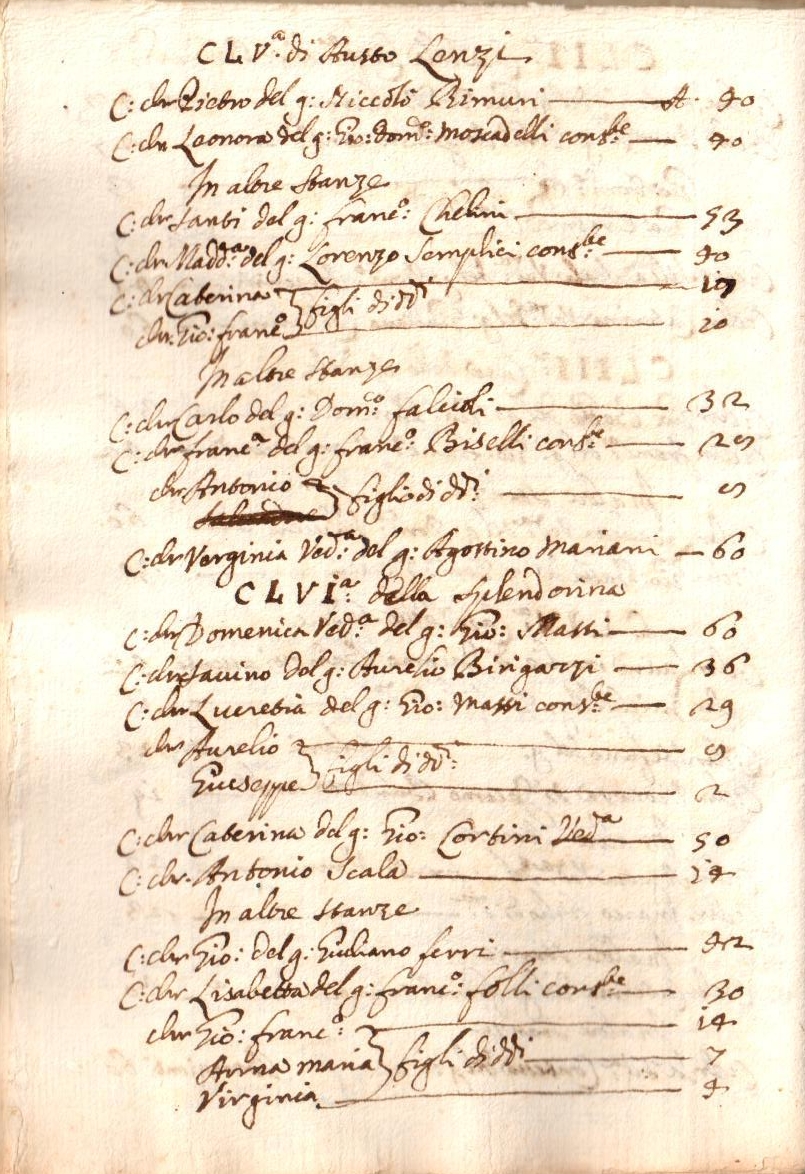 CLVª. di Austo Lenzi
C: chr Pietro del q: Niccolò Rimuri — A. 40
C: chr Leonora del q: Gio: Domco: Moscadelli consbe — 40
In altre Stanze
C: chr Santi del q: Franco: Chelini — 53
C: chr Madda del q: Lorenzo Semplici consbe — 40
C: chr Caterina } figli di ddi — 
chr. Gio: Franco — 10
In altre Stanze
C: chr Carlo del q: Domco: Falcioli — 32
C: chr Franca del q: Franco: Biselli conse — 25
chr Antonio } figlio di ddi: — 5
C: chr Verginia Veda: del q: Agostino Mariani — 60
CLVIª: della Splendorina
C: chr Domenica Veda: del q: Gio: Massi — 60
C: chr Savino del q: Aurelio Birigazzi — 36
C: chr Lucretia del q: Gio: Massi consbe — 29
chr Aurelio } figli di ddi: — 5
Giuseppe — 2
C: chr Caterina del q: Gio: Cortini Veda — 50
C: chr. Antonio Scala — 14
In altre stanze
C: chr Gio: del q: Giuliano Ferri — 42
C: chr Lisabetta del q: Franco: Folli consbe — 30
chr Gio: Franco: — 14
Anna Maria } figli di ddi — 7
Virginia — 4